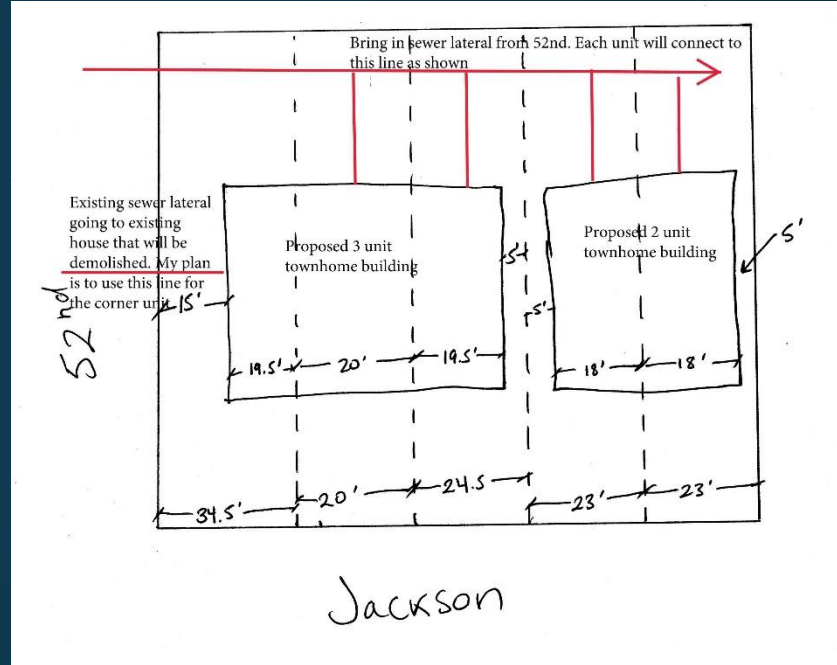 Bring in sewer lateral from 52nd. Each unit will connect to
this line as shown
Existing sewer lateral
going to existing
house that will be
demolished. My plan
is to use this line for
the corner unit.
Proposed 3 unit
townhome building
Proposed 2 unit
townhome building
5'
5'
5'
15'
52nd
19.5'
20'
19.5'
18'
18'
34.5'
20'
24.5
23'
23'
Jackson